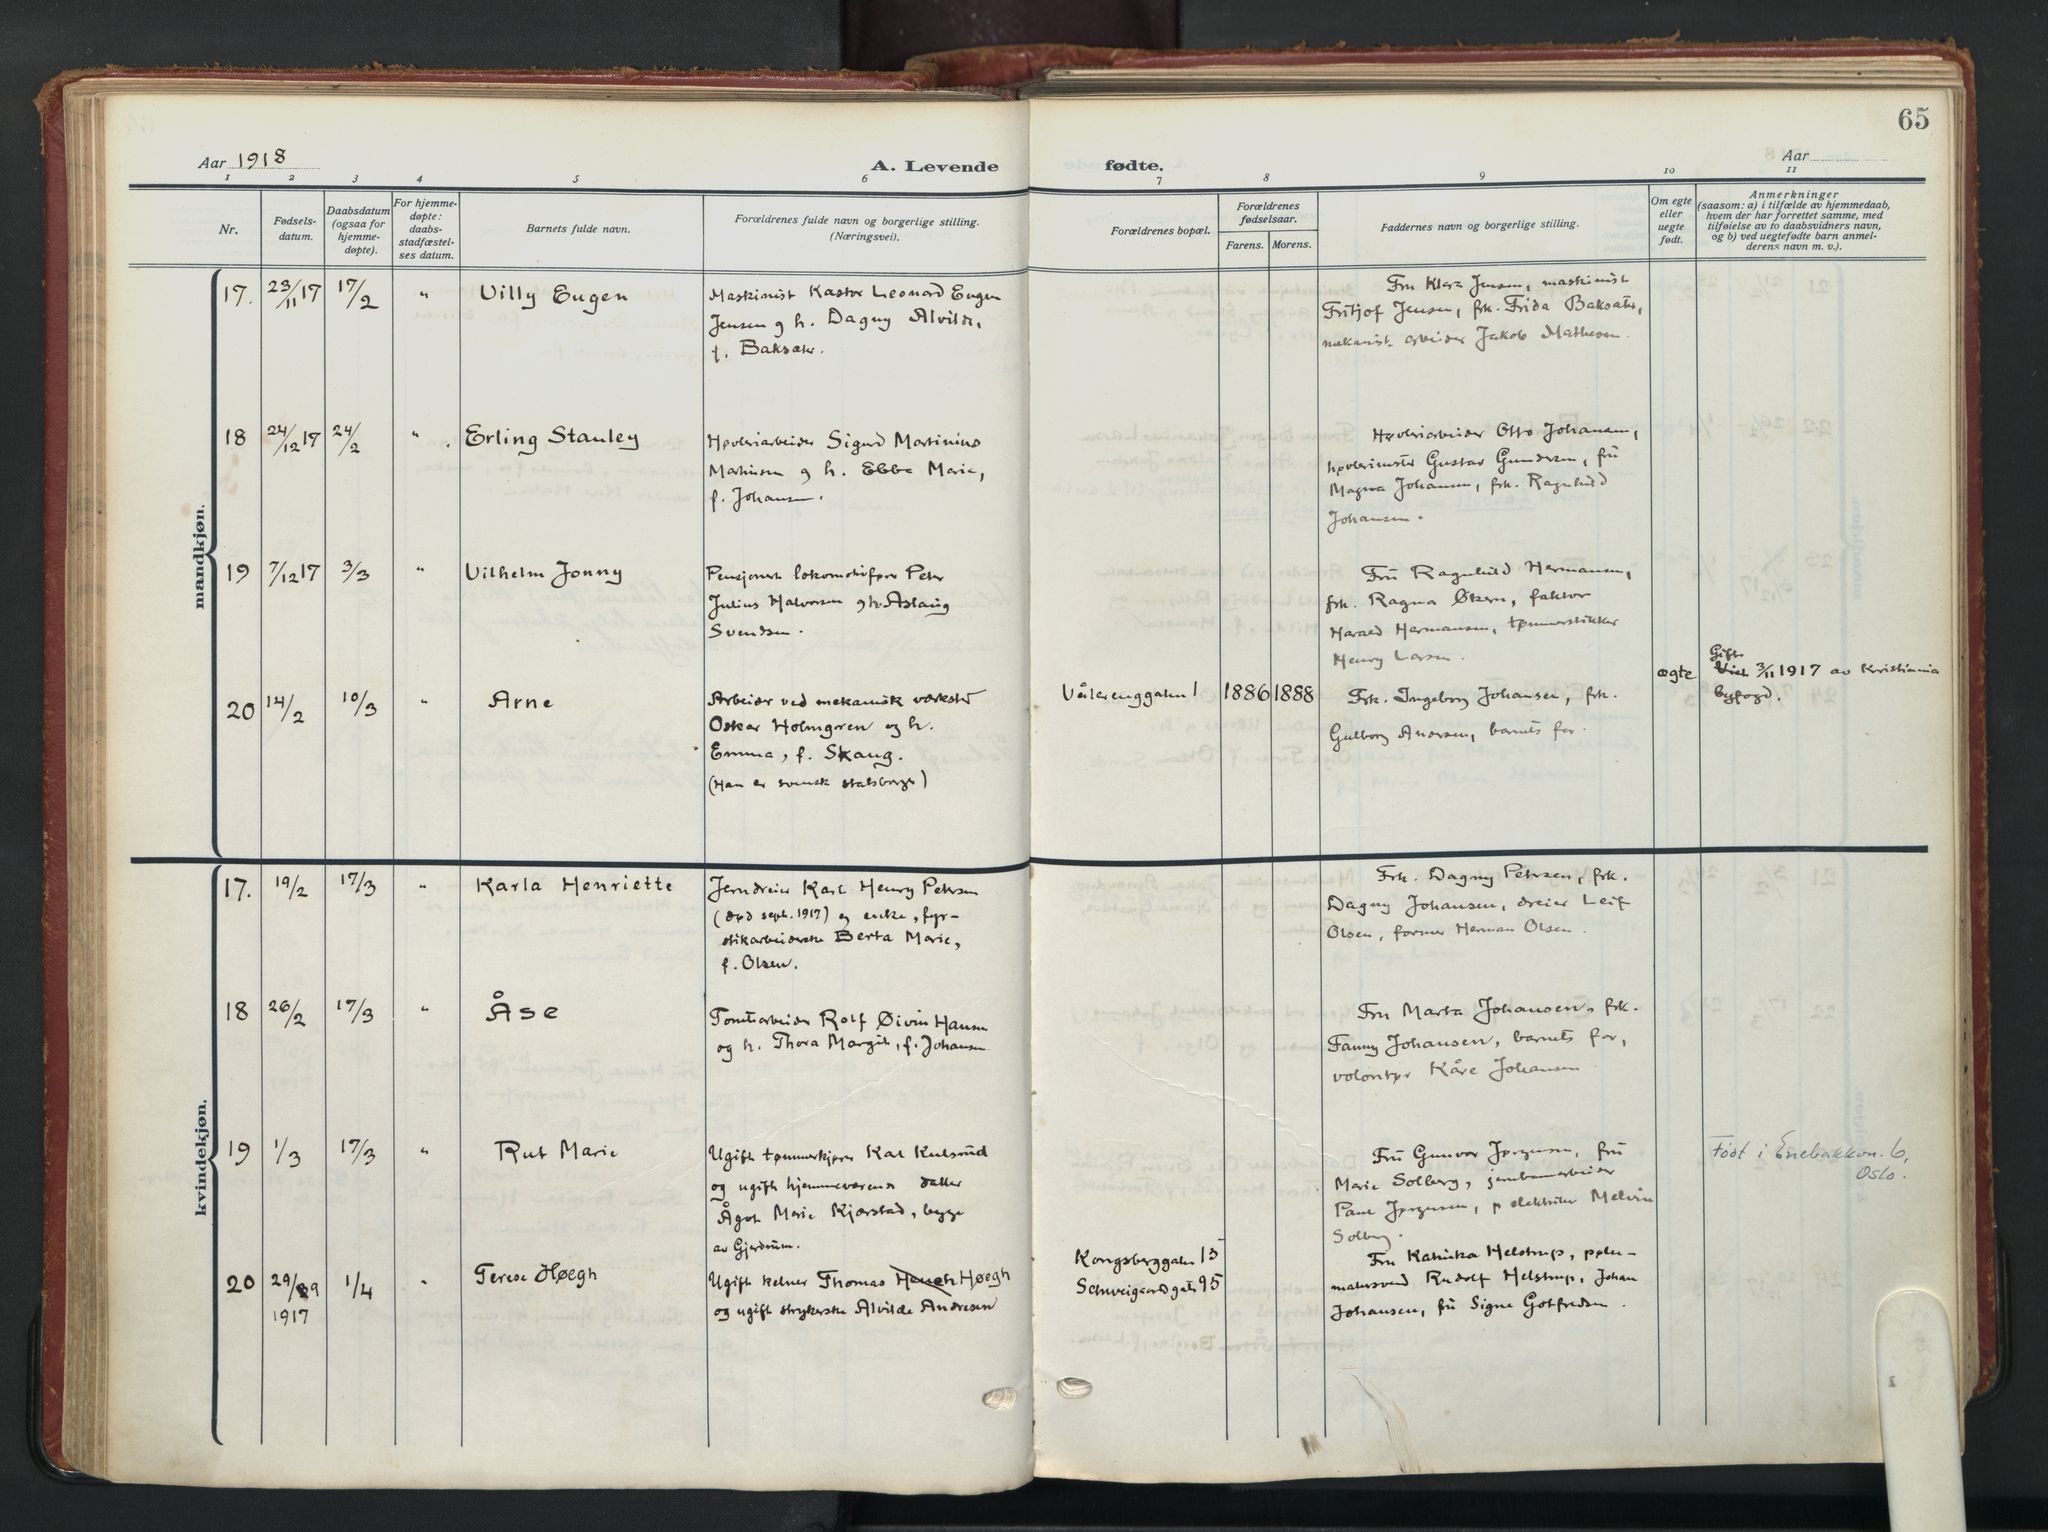 65
Aar 1918
A. Levende
fødte.
Aar
1 2 3 4 5 6 7 8 9 10 11
Nr.
Fødsels-
datum.
Daabsdatum
(ogsaa for
hjemme-
døpte).
For hjemme-
døpte:
daabs-
stadfæstel-
ses datum.
Barnets fulde navn.
Forældrenes fulde navn og borgerlige stilling.
(Næringsvei).
Forældrenes bopæl.
Forældrenes
fødselsaar.
Farens. Morens.
Faddernes navn og borgerlige stilling.
Om egte
eller
uegte
født.
Anmerkninger
(saasom: a) i tilfælde av hjemmedaab,
hvem der har forrettet samme, med
tilføielse av to daabsvidners navn,
og b) ved uegtefødte barn anmel-
derens navn m. v.).
mandkjøn.
17. 23/11 17 17/2 " Villy Eugen
Maskinist Kastor Leonard Eugen
Jensen og h. Dagny Alvilde,
f. Baksæter.
Fru Klara Jensen, maskinist
Fritjof Jensen, frk. Frida Baksæter,
mekanisk arbeider Jakob Mathesen.
18 24/12 17 24/2 " Erling Stanley
Høvleriarbeider Sigurd Martinius
Martinsen og h. Ebba Marie,
f. Johansen.
Høvleriarbeider Otto Johansen,
høvlerimester Gustav Gundersen, fru
Magna Johansen, frk. Ragnhild
Johansen.
19 7/12 17 3/3 " Vilhelm Jonny
Pensjonert lokomotivfører Peter
Julius Halvorsen og h. Aslaug
Svendsen.
Fru Ragnhild Hermansen,
frk. Ragna Økern, faktor
Harald Hermansen, tømmerstikker
Henry Larsen.
20 14/2 10/3 " Arne
Arbeider ved mekanisk værksted
Oskar Holmgren og h.
Emma, f. Skaug.
(Han er svensk statsborger)
Vålerenggaten 1 1886 1888
Frk. Ingeborg Johansen, frk.
Gulborg Andersen, barnets far.
ægte
Gift
Viet 3/11 1917 av Kristiania
byfogd.
kvindekjøn.
17. 19/2 17/3 " Karla Henriette
Jerndreier Karl Henry Petersen
(død sept. 1917) og enke, fyr-
stikarbeiderske Berta Marie,
f. Olsen.
Frk. Dagny Petersen, frk.
Dagny Johansen, dreier Leif
Olsen, former Herman Olsen.
18 26/2 17/3 " Åse
Tomtearbeider Rolf Øivin Hansen
og h. Thora Margit, f. Johansen
Fru Marta Johansen, frk.
Fanny Johansen, barnets far,
volontør Kåre Johansen
19 1/3 17/3 " Rut Marie
Ugift tømmerkjører Karl Kulsrud
og ugift hjemmeværende datter
Ågot Marie Kjærstad, begge
av Gjerdrum.
Fru Gunvor Jørgensen, fru
Marie Solberg, jernbanearbeider
Paul Jørgensen, elektriker Melvin
Solberg.
Født i Enebakkvn. 6,
Oslo.
20 29/9 1917 1/4 " Terese Høegh
Ugift kelner Thomas Høegh
og ugift strykerske Alvilde Andresen
Kongsberggaten 15
Schweigaardsgate 95
Fru Katinka Helstrup, pøls-
makersvend Rudolf Helstrup, Johan
Johansen, fru Signe Gotfredsen.